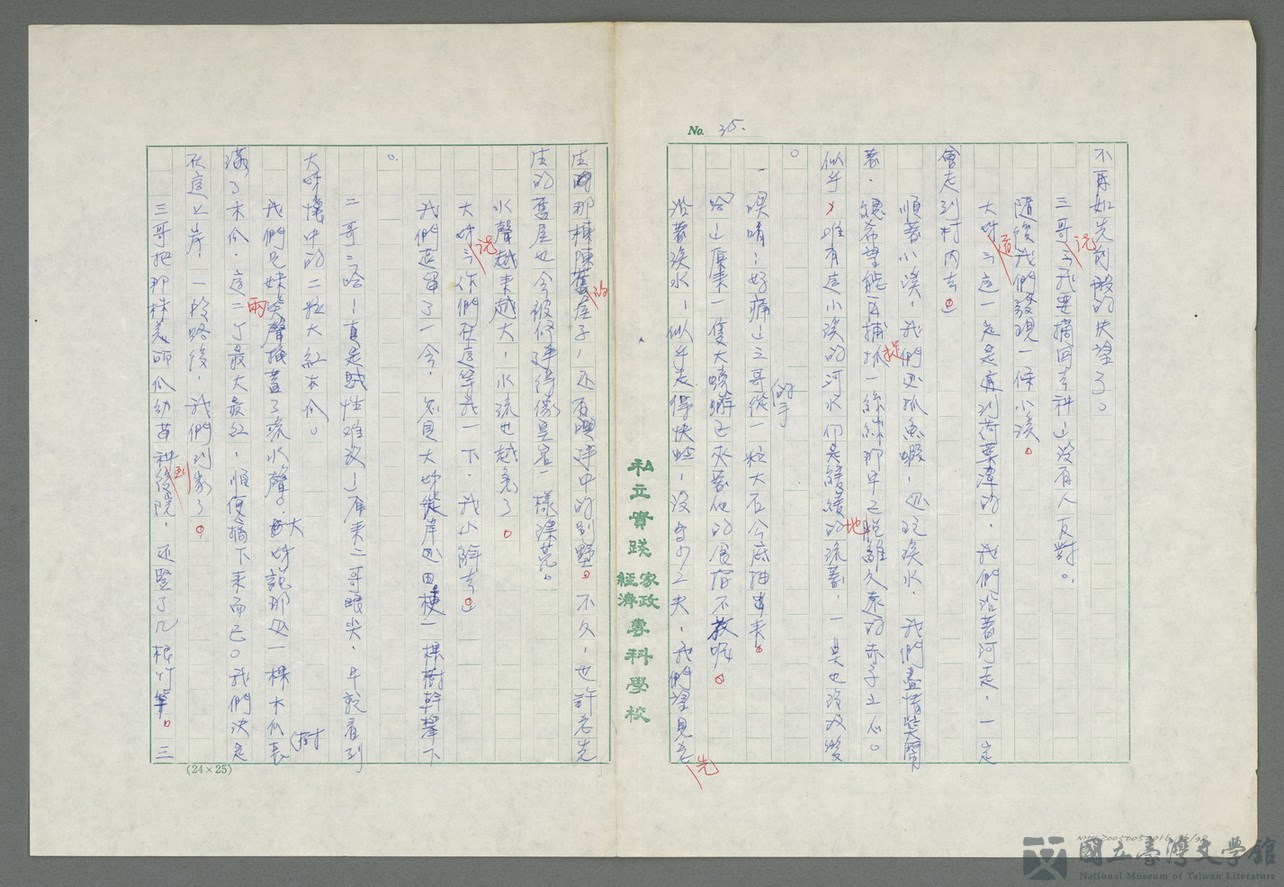 No. 35.
不再如先前般的失望了。
三哥說:「我要摘回去種」沒有人反對。
隨後我們發現一條小溪。
大姊道:「這一定是通到
的,我們沿著河走,一定
會走到村內去」。
順著小溪,我們邊抓魚蝦,邊玩溪水,我們盡情
著,總希望能再捕捉一絲絲那早已脫離久遠的赤子之心。
似乎,唯有這小溪的河水仍是緩緩地流著,一點也沒改變
。
「唉唷!好痛」三哥從一粒大石
底抽出
的手
來。
一隻大螃蟹正夾著他的
不放呢。
沿著溪水,似乎走得快些,沒多少工夫,我們望見
先
生的那棟陳舊的房子,還有興建中的別墅。不久,也許老先
生的舊屋也會被修建得像皇宮一樣漂亮。
水聲越來越大,水流也越急了。
大姊說:「你們在這等我一下,我小解去」。
我們逗留了一會,忽見大姊從岸邊
一棵樹幹
下
。
二哥:「哈!真是賊性難改」原來二哥眼尖,早就看到
大姊懷中的二粒大紅木瓜。
我們兄妹笑聲掩蓋了流水聲。大姊說那邊一棵木瓜樹長
滿了木瓜,這兩
最大最紅,順便摘下來而已。我們決定
在這上岸,一
路後,我們到家了。
三哥把那株
瓜幼苗種到後院,還豎了几根竹竿。三
(24×25)
私立實踐家政經濟專科學校
國立臺灣文學館
National Museum of Taiwan Literature